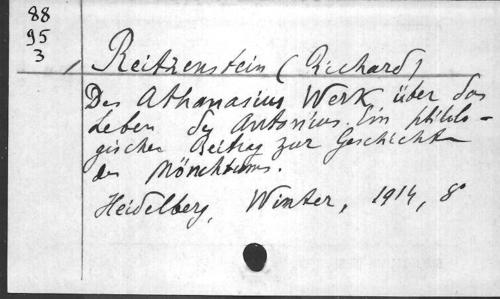 88
95
3
Reitzenstein (Richard)
Des Athanasius Werk über das
Leben des Antonius. Ein philolo-
gischer Beitrag zur Geschichte
des Mönchtums.
Heidelberg, Winter, 1914, 8°